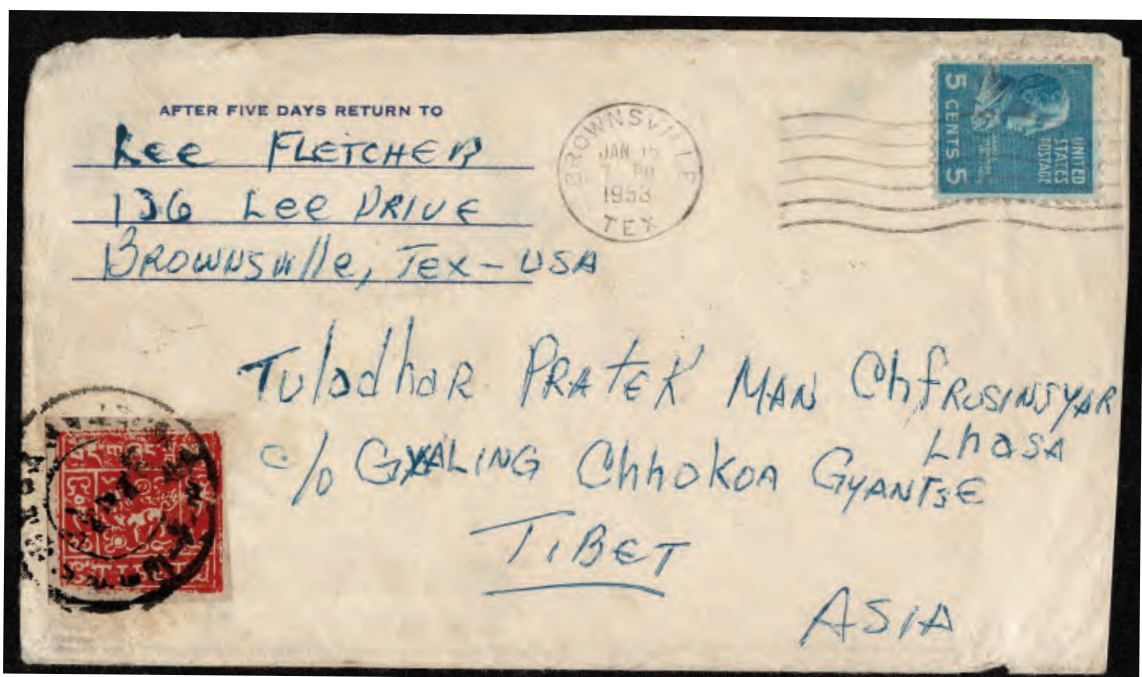 AFTER FIVE DAYS RETURN TO
Lee FLETCHER
136 Lee DRIVE
BROWNSVIlle, Tex - USA
BROWNSVILLE
JAN 15
7 PM
1953
TEX
UNITED
STATES
POSTAGE
5 CENTS 5
Tuladhar PRATEK MAN ChfRUSINSYAR
Lhasa
c/o GYALING Chhokoa GYANTSE
TIBET
ASIA